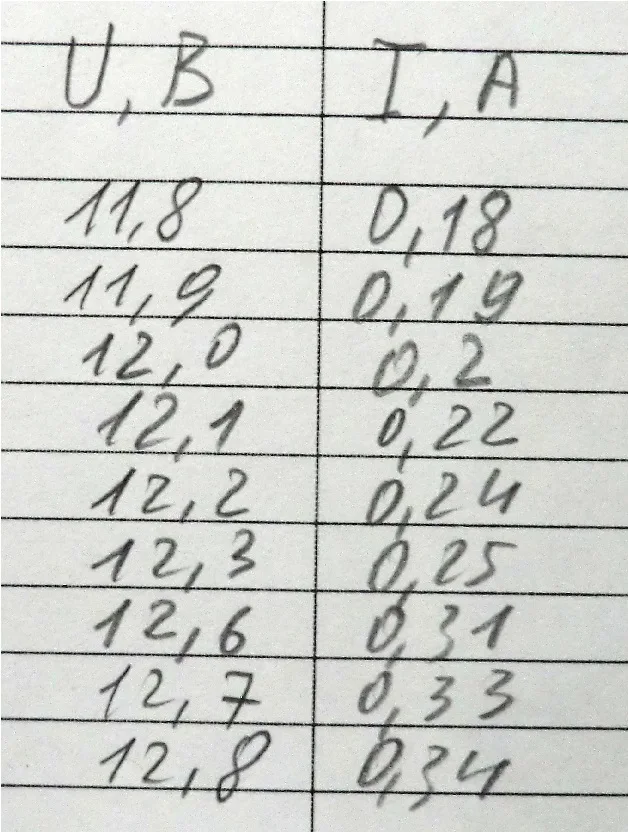 U, В I, A
11,8 0,18
11,9 0,19
12,0 0,2
12,1 0,22
12,2 0,24
12,3 0,25
12,6 0,31
12,7 0,33
12,8 0,34